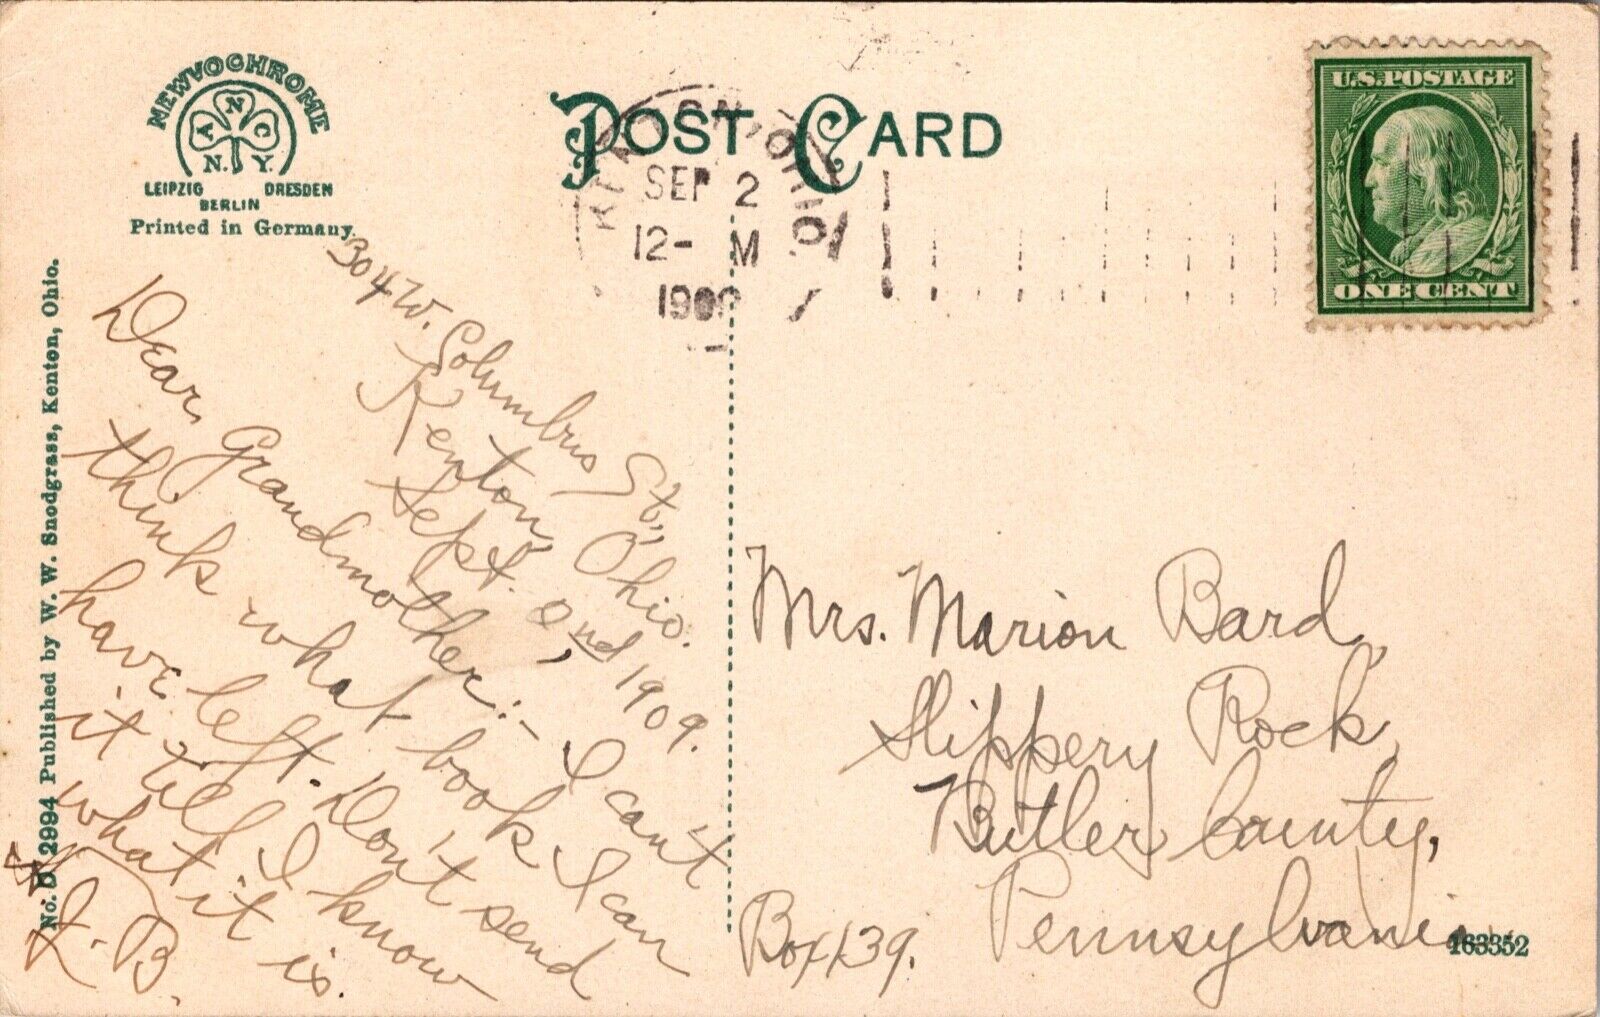 NEWVOCHROME
A N C
N. Y.
LEIPZIG DRESDEN
BERLIN
Printed in Germany.
POST CARD
KENTON, OHIO.
SEP 2
12- M
1909
U.S. POSTAGE
ONE CENT
No. D. 2994 Published by W. W. Snodgrass, Kenton, Ohio.
304 W. Columbus St.,
Kenton, Ohio.
Sept. 2nd, 1909.
Dear Grandmother:- I can't
think what book I can
have left. Don't send
it till I know
what it is.
L. B.
Mrs. Marion Bard,
Slippery Rock,
Butler County,
Pennsylvania
Box 139.
163352